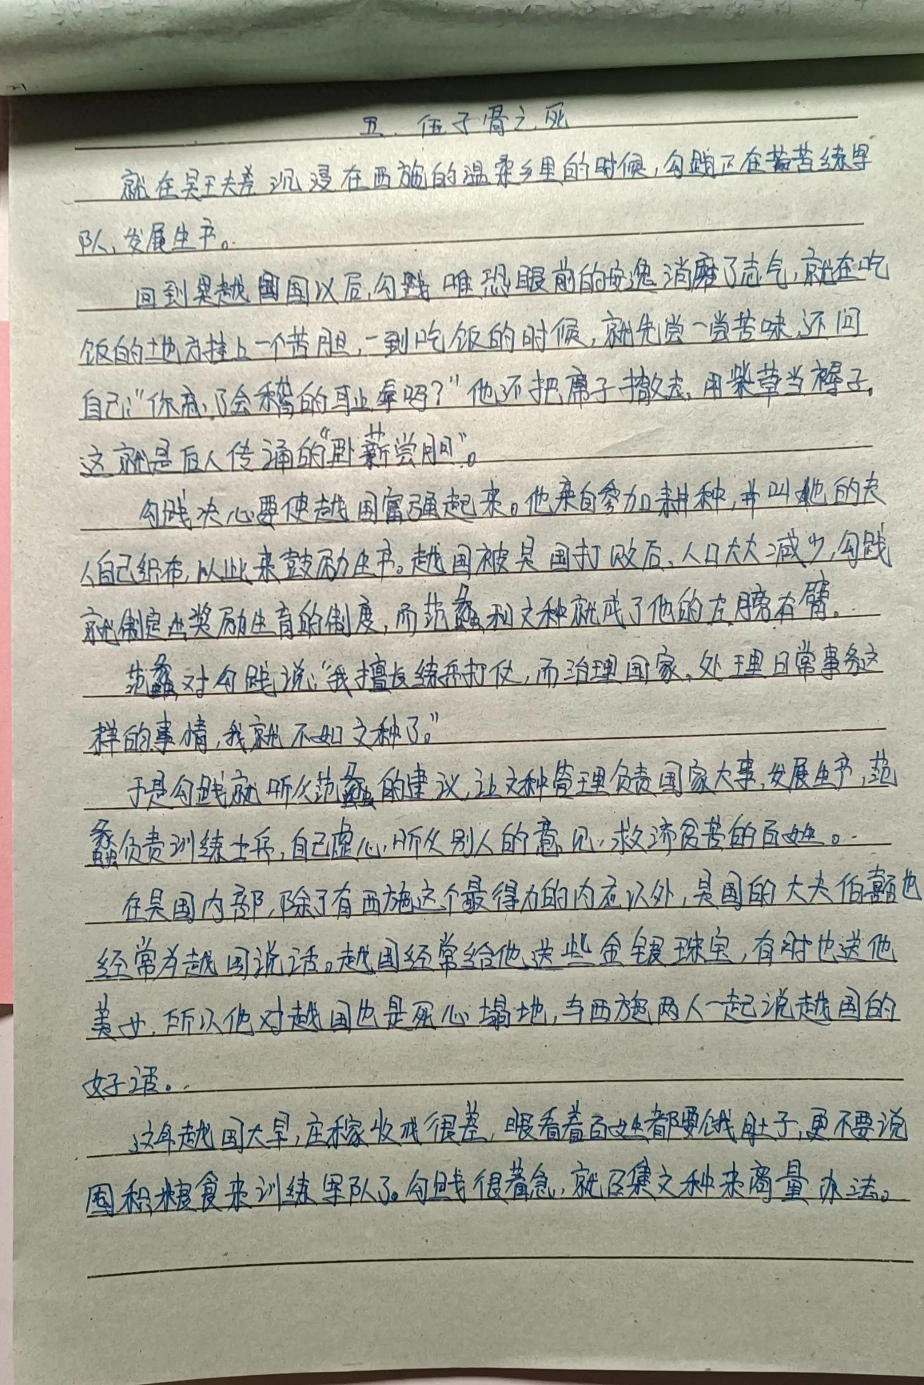 五、伍子胥之死
就在吴王夫差沉浸在西施的温柔乡里的时候，勾践正在艰苦练军
队、发展生产。
回到越国以后，勾践唯恐眼前的安逸消磨了志气，就在吃
饭的地方挂上一个苦胆，一到吃饭的时候，就先尝一尝苦味，还问
自己：“你忘了会稽的耻辱吗？”他还把席子撤去，用柴草当褥子，
这就是后人传诵的“卧薪尝胆”。
勾践决心要使越国富强起来。他亲自参加耕种，并叫他的夫
人自己织布，以此来鼓励生产。越国被吴国打败后、人口大大减少，勾践
就制定出奖励生育的制度，而范蠡和文种就成了他的左膀右臂。
范蠡对勾践说：“我擅长练兵打仗，而治理国家、处理日常事务这
样的事情，我就不如文种了。”
于是勾践就听从范蠡的建议，让文种管理负责国家大事，发展生产，范
蠡负责训练士兵，自己虚心听从别人的意见，救济贫苦的百姓。
在吴国内部，除了有西施这个最得力的内应以外，吴国的大夫伯嚭也
经常为越国说话。越国经常给他送些金银珠宝，有时也送他
美女，所以他对越国也是死心塌地，与西施两人一起说越国的
好话。
这年越国大旱，庄稼收成很差，眼看着百姓都要饿肚子，更不要说
囤积粮食来训练军队了。勾践很着急，就召集文种来商量办法。